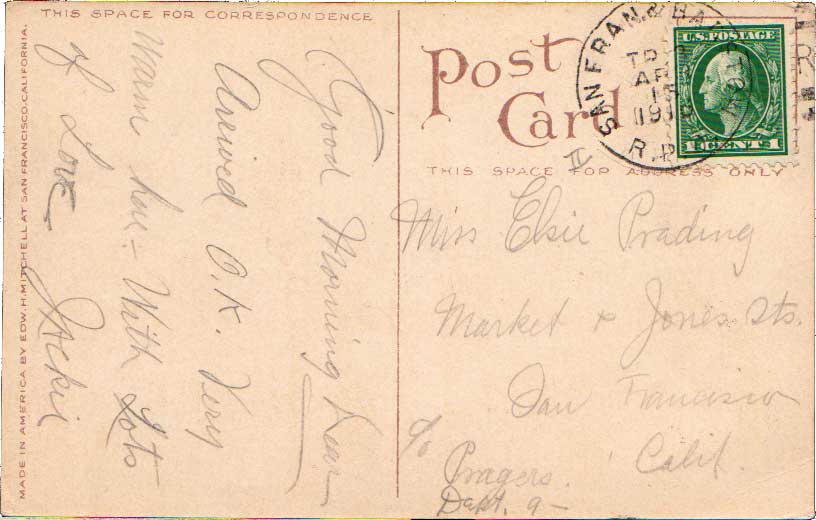 THIS SPACE FOR CORRESPONDENCE
Good Morning Dear
Arrived O.K. Very
Warm here - With Lots
of Love Jackie
MADE IN AMERICA BY EDW. H. MITCHELL AT SAN FRANCISCO, CALIFORNIA.
Post
Card
THIS SPACE FOR ADDRESS ONLY
SAN FRAN. &
TR
AP
15
R.P.
U.S. POSTAGE
1 CENT 1
Miss Elsie Prading
Market & Jones Sts.
San Francisco
Calif.
c/o
Pragers.
Dept. 9-